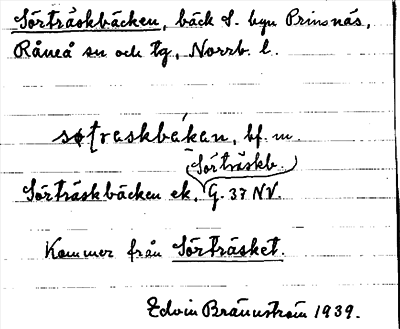 Sörträskbäcken, bäck S. byn Prinsnäs,
Råneå sn och tg, Norrb. l.
søʈraskbɛ́kan, bf. m.
(Sörträskb.)
Sörträskbäcken ek, G. 37 NV.
Kommer från Sörträsket.
Edvin Brännström 1939.